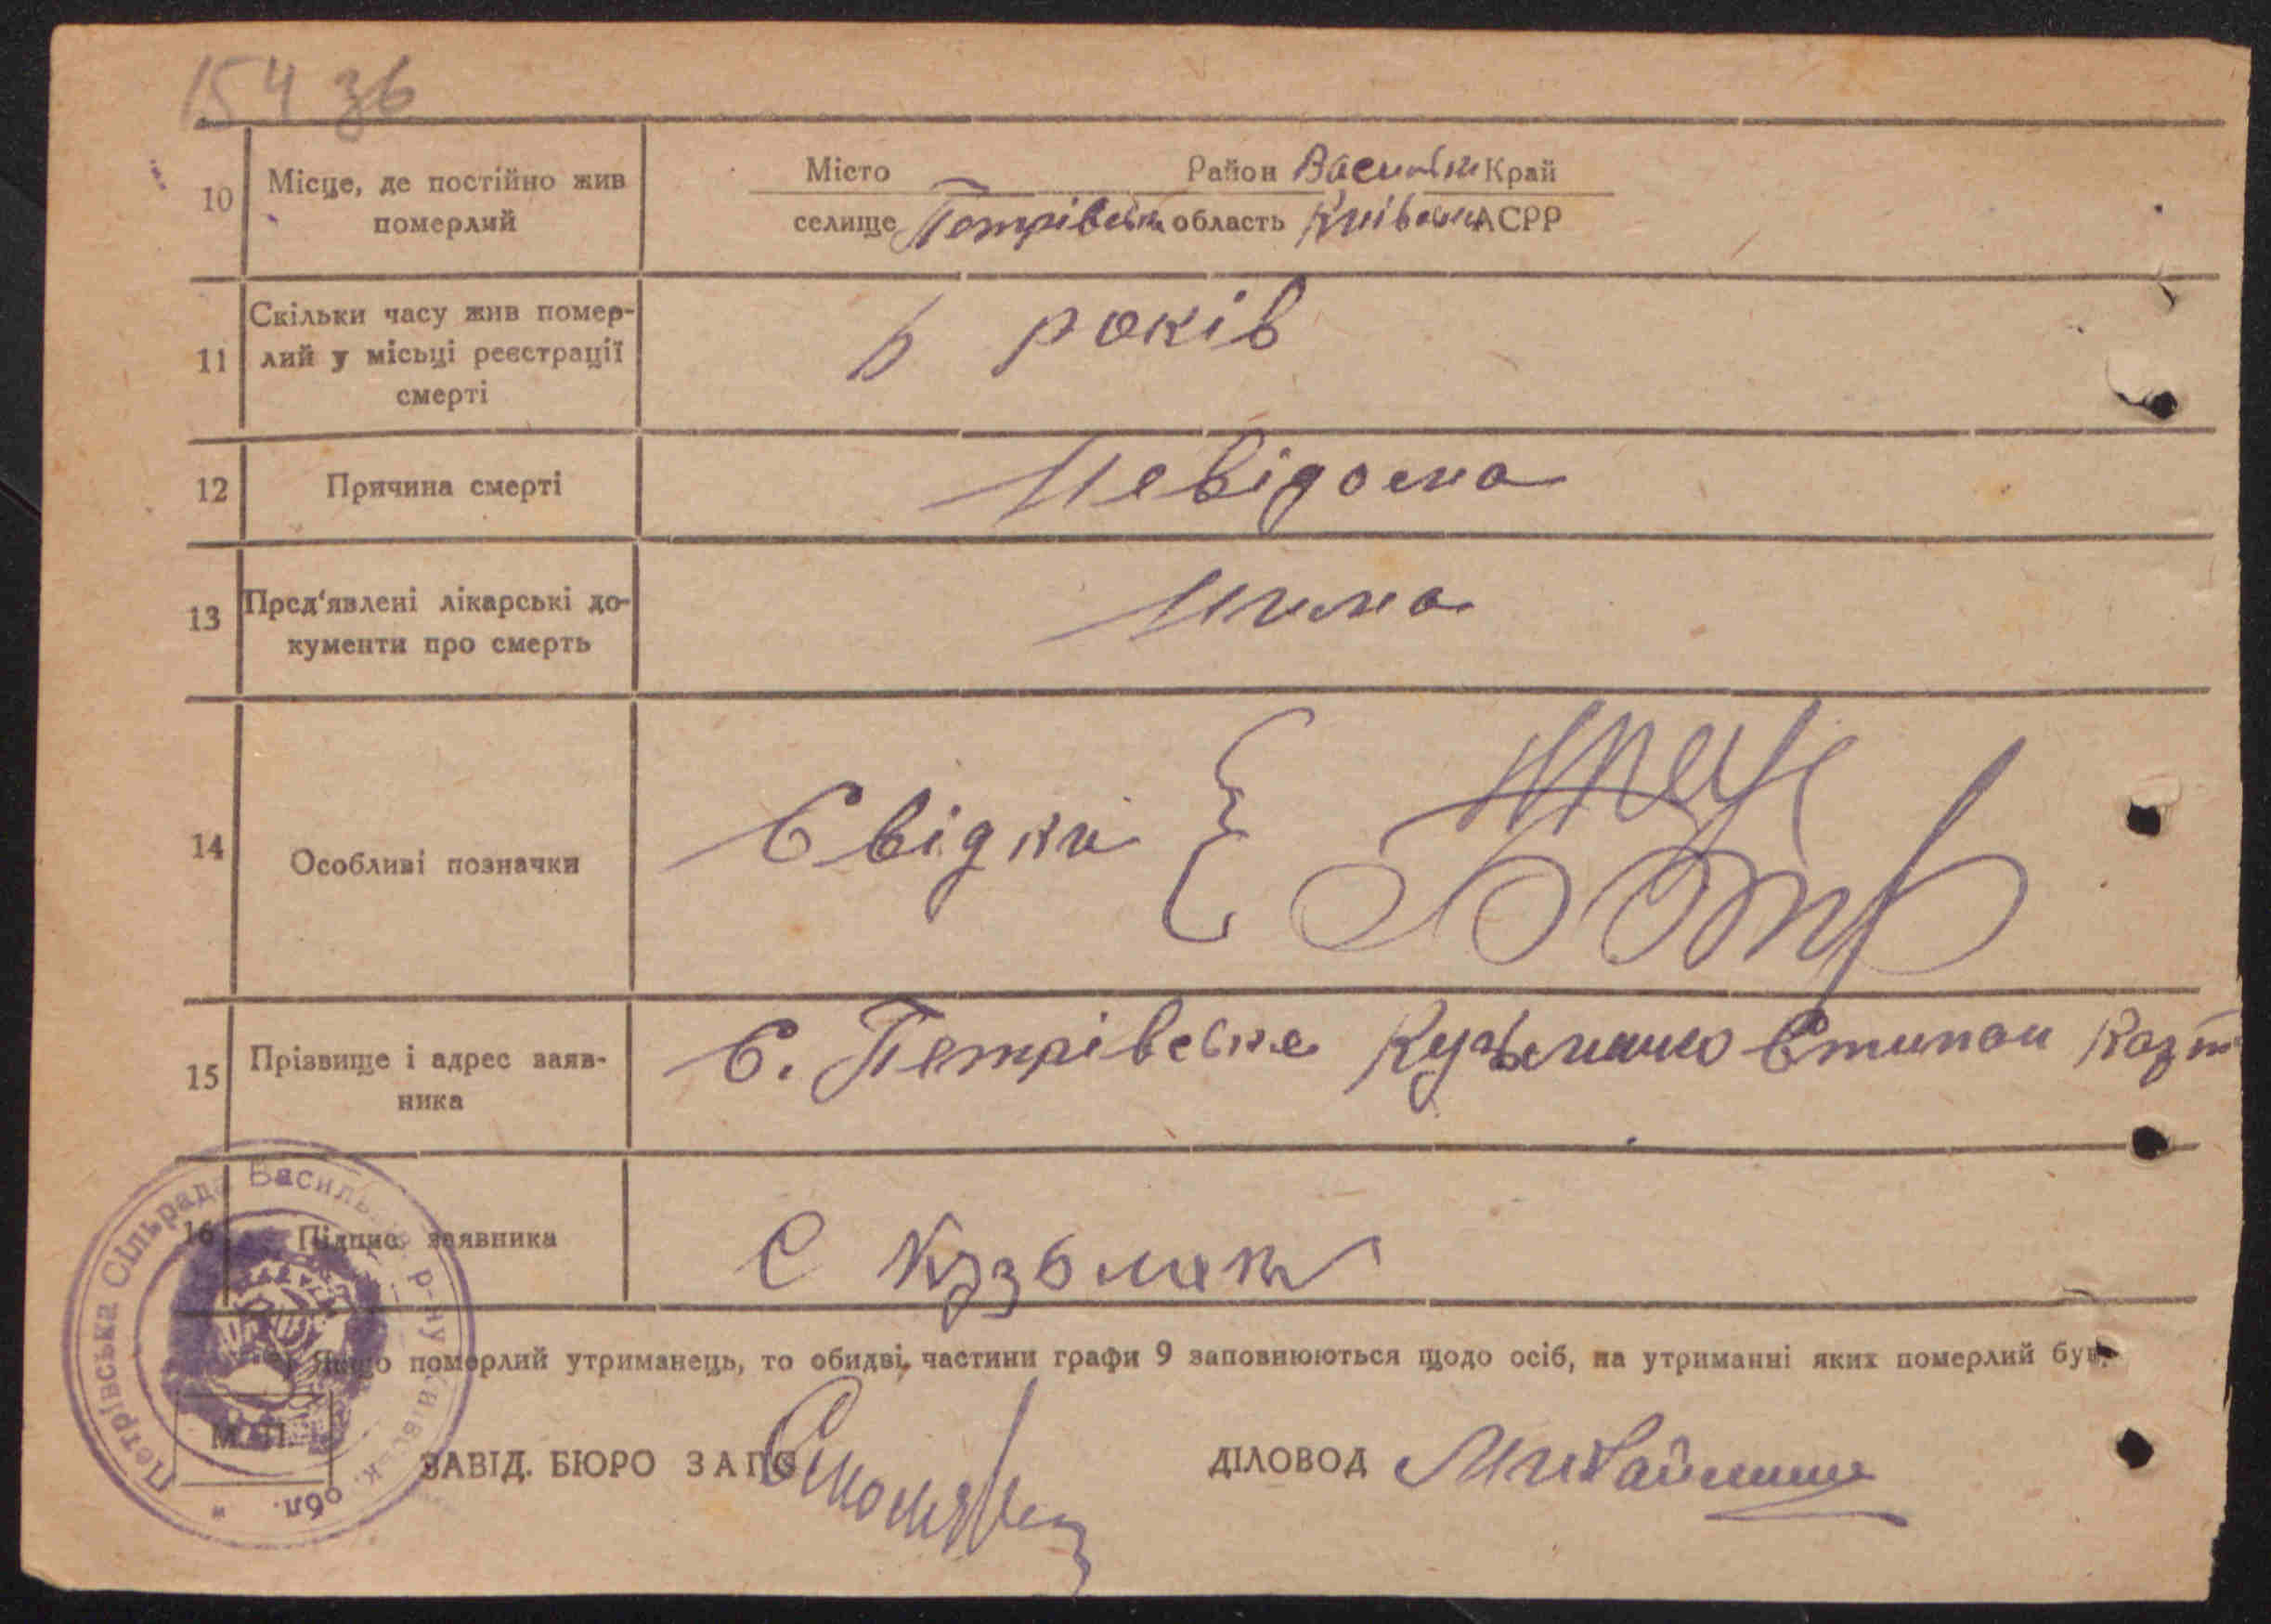 154 зв
10 Місце, де постійно жив
померлий
Місто Район Васильк Край
селище Петрівськ область Київськ АСРР
11 Скільки часу жив помер-
лий у місьці реєстрації
смерті
6 років
12 Причина смерті Невідома
13 Пред'явлені лікарські до-
кументи про смерть
Нима
14 Особливі позначки Свідки
15 Прізвище і адрес заяв-
ника
С. Петрівське Кузьменко Стипан
16 Підпис заявника С Кузьменк
Якщо померлий утриманець, то обидві частини графи 9 заповнюються щодо осіб, на утриманні яких померлий був.
М. П.
ЗАВІД. БЮРО ЗАГС ДІЛОВОД
Петрівська Сільрада Василь р-ну Київськ. обл.